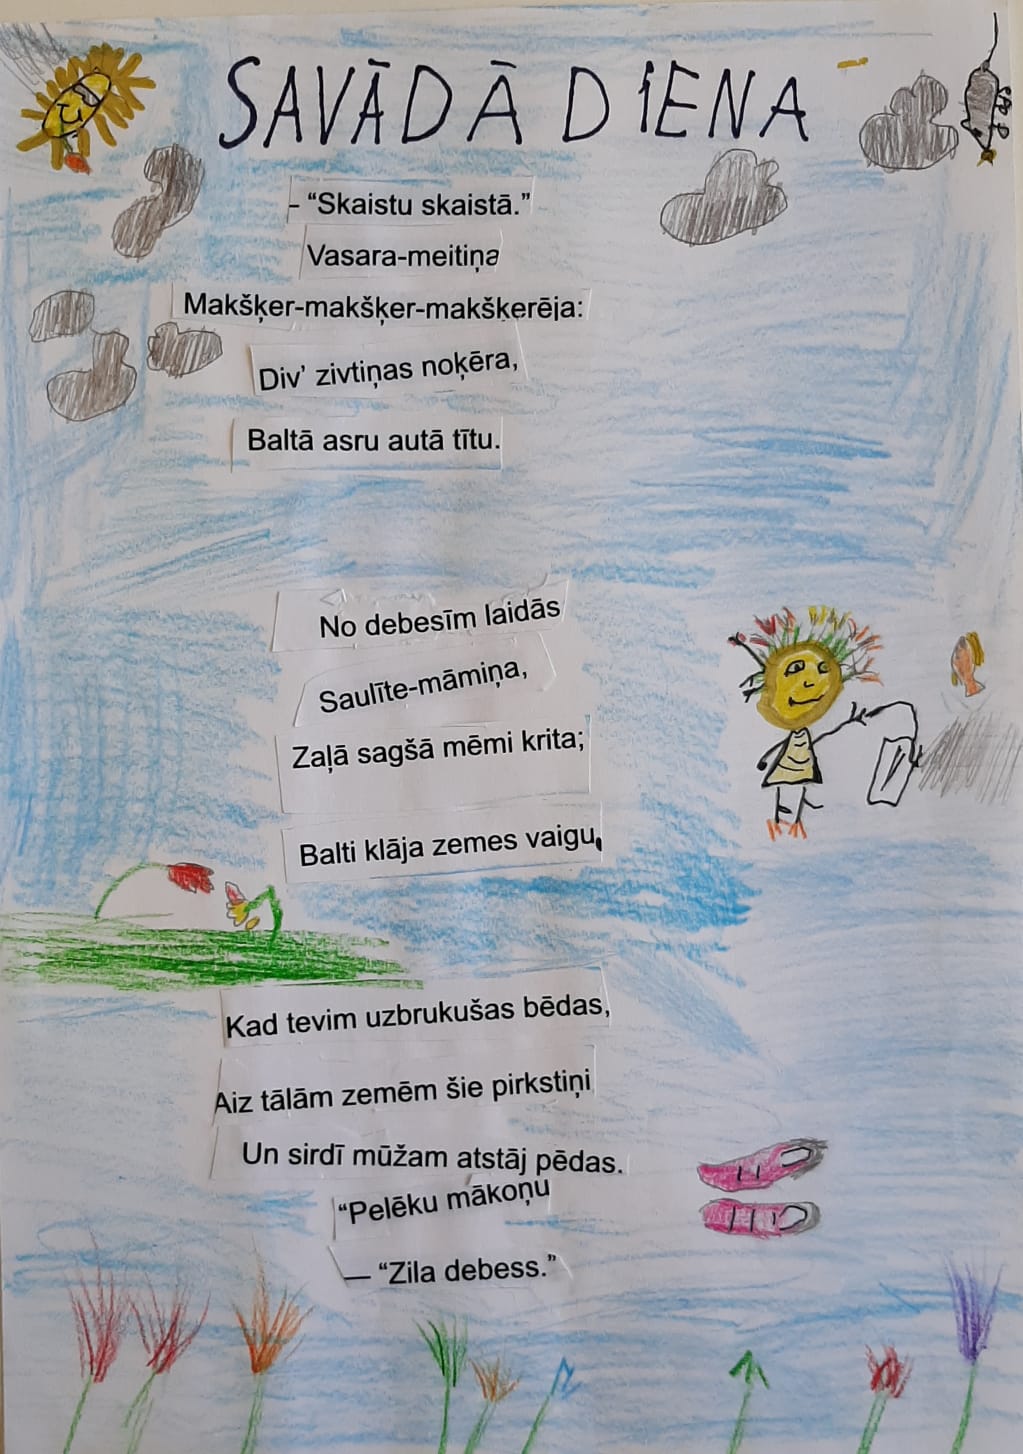 SAVĀDĀ DIENA
- “Skaistu skaistā.”
Vasara-meitiņa
Makšķer-makšķer-makšķerēja:
Div’ zivtiņas noķēra,
Baltā asru autā tītu.
No debesīm laidās
Saulīte-māmiņa,
Zaļā sagšā mēmi krita;
Balti klāja zemes vaigu,
Kad tevim uzbrukušas bēdas,
Aiz tālām zemēm šie pirkstiņi
Un sirdī mūžam atstāj pēdas.
“Pelēku mākoņu
— “Zila debess.”